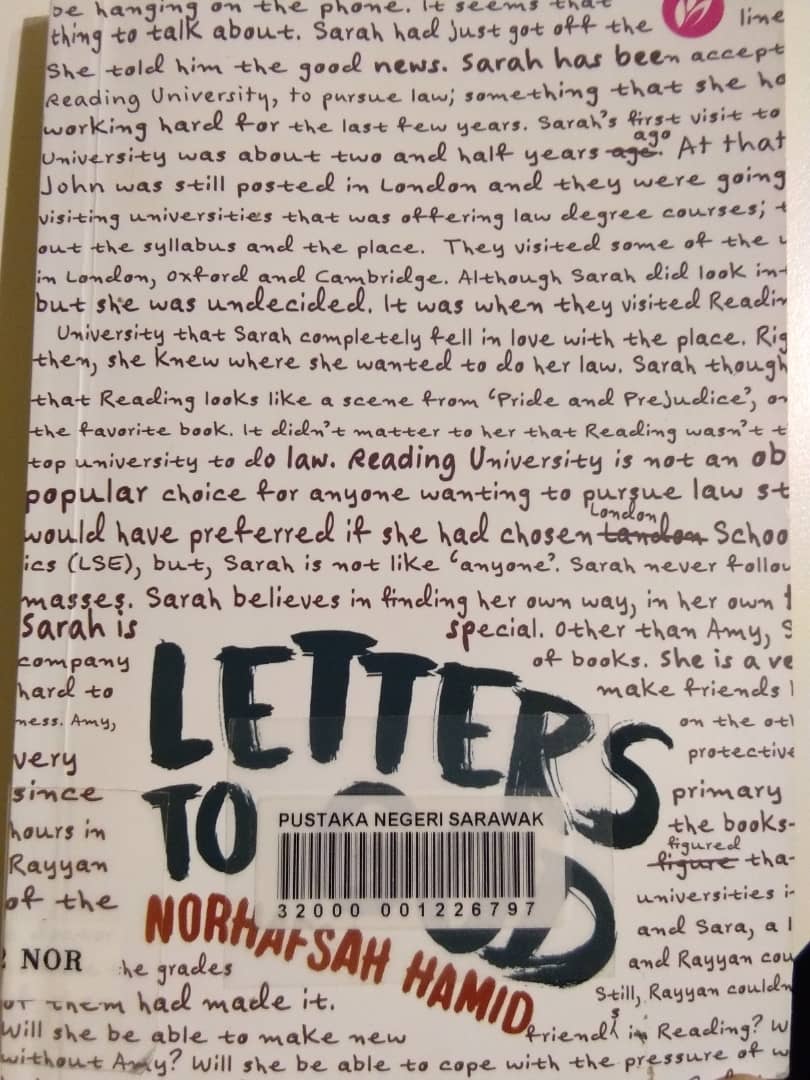 be hanging on the phone. It seems that
thing to talk about. Sarah had just got off the line
She told him the good news. Sarah has been accept
Reading University, to pursue law; something that she ha
working hard for the last few years. Sarah's first visit to
ago
University was about two and half years age. At that
John was still posted in London and they were going
visiting universities that was offering law degree courses; t
out the syllabus and the place. They visited some of the u
in London, Oxford and Cambridge. Although Sarah did look in
but she was undecided. It was when they visited Readin
University that Sarah completely fell in love with the place. Rig
then, she knew where she wanted to do her law. Sarah though
that Reading looks like a scene from 'Pride and Prejudice', on
the favorite book. It didn't matter to her that Reading wasn't t
top university to do law. Reading University is not an ob
popular choice for anyone wanting to pursue law st
London
would have preferred if she had chosen Landon Schoo
ics (LSE), but, Sarah is not like 'anyone'. Sarah never follow
masses. Sarah believes in finding her own way, in her own
Sarah is special. Other than Amy, S
company of books. She is a ve
hard to make friends
ness. Amy, on the oth
very protective
since primary
hours in the books-
figured
Rayyan figure tha-
of the universities i
and Sara, a l
LETTERS
TO
PUSTAKA NEGERI SARAWAK
32000 001226797
NORHAFSAH HAMID
NOR and Rayyan cou
he grades Still, Rayyan couldn
of them had made it.
s
Will she be able to make new friend in Reading? W
without Amy? Will she be able to cope with the pressure of w